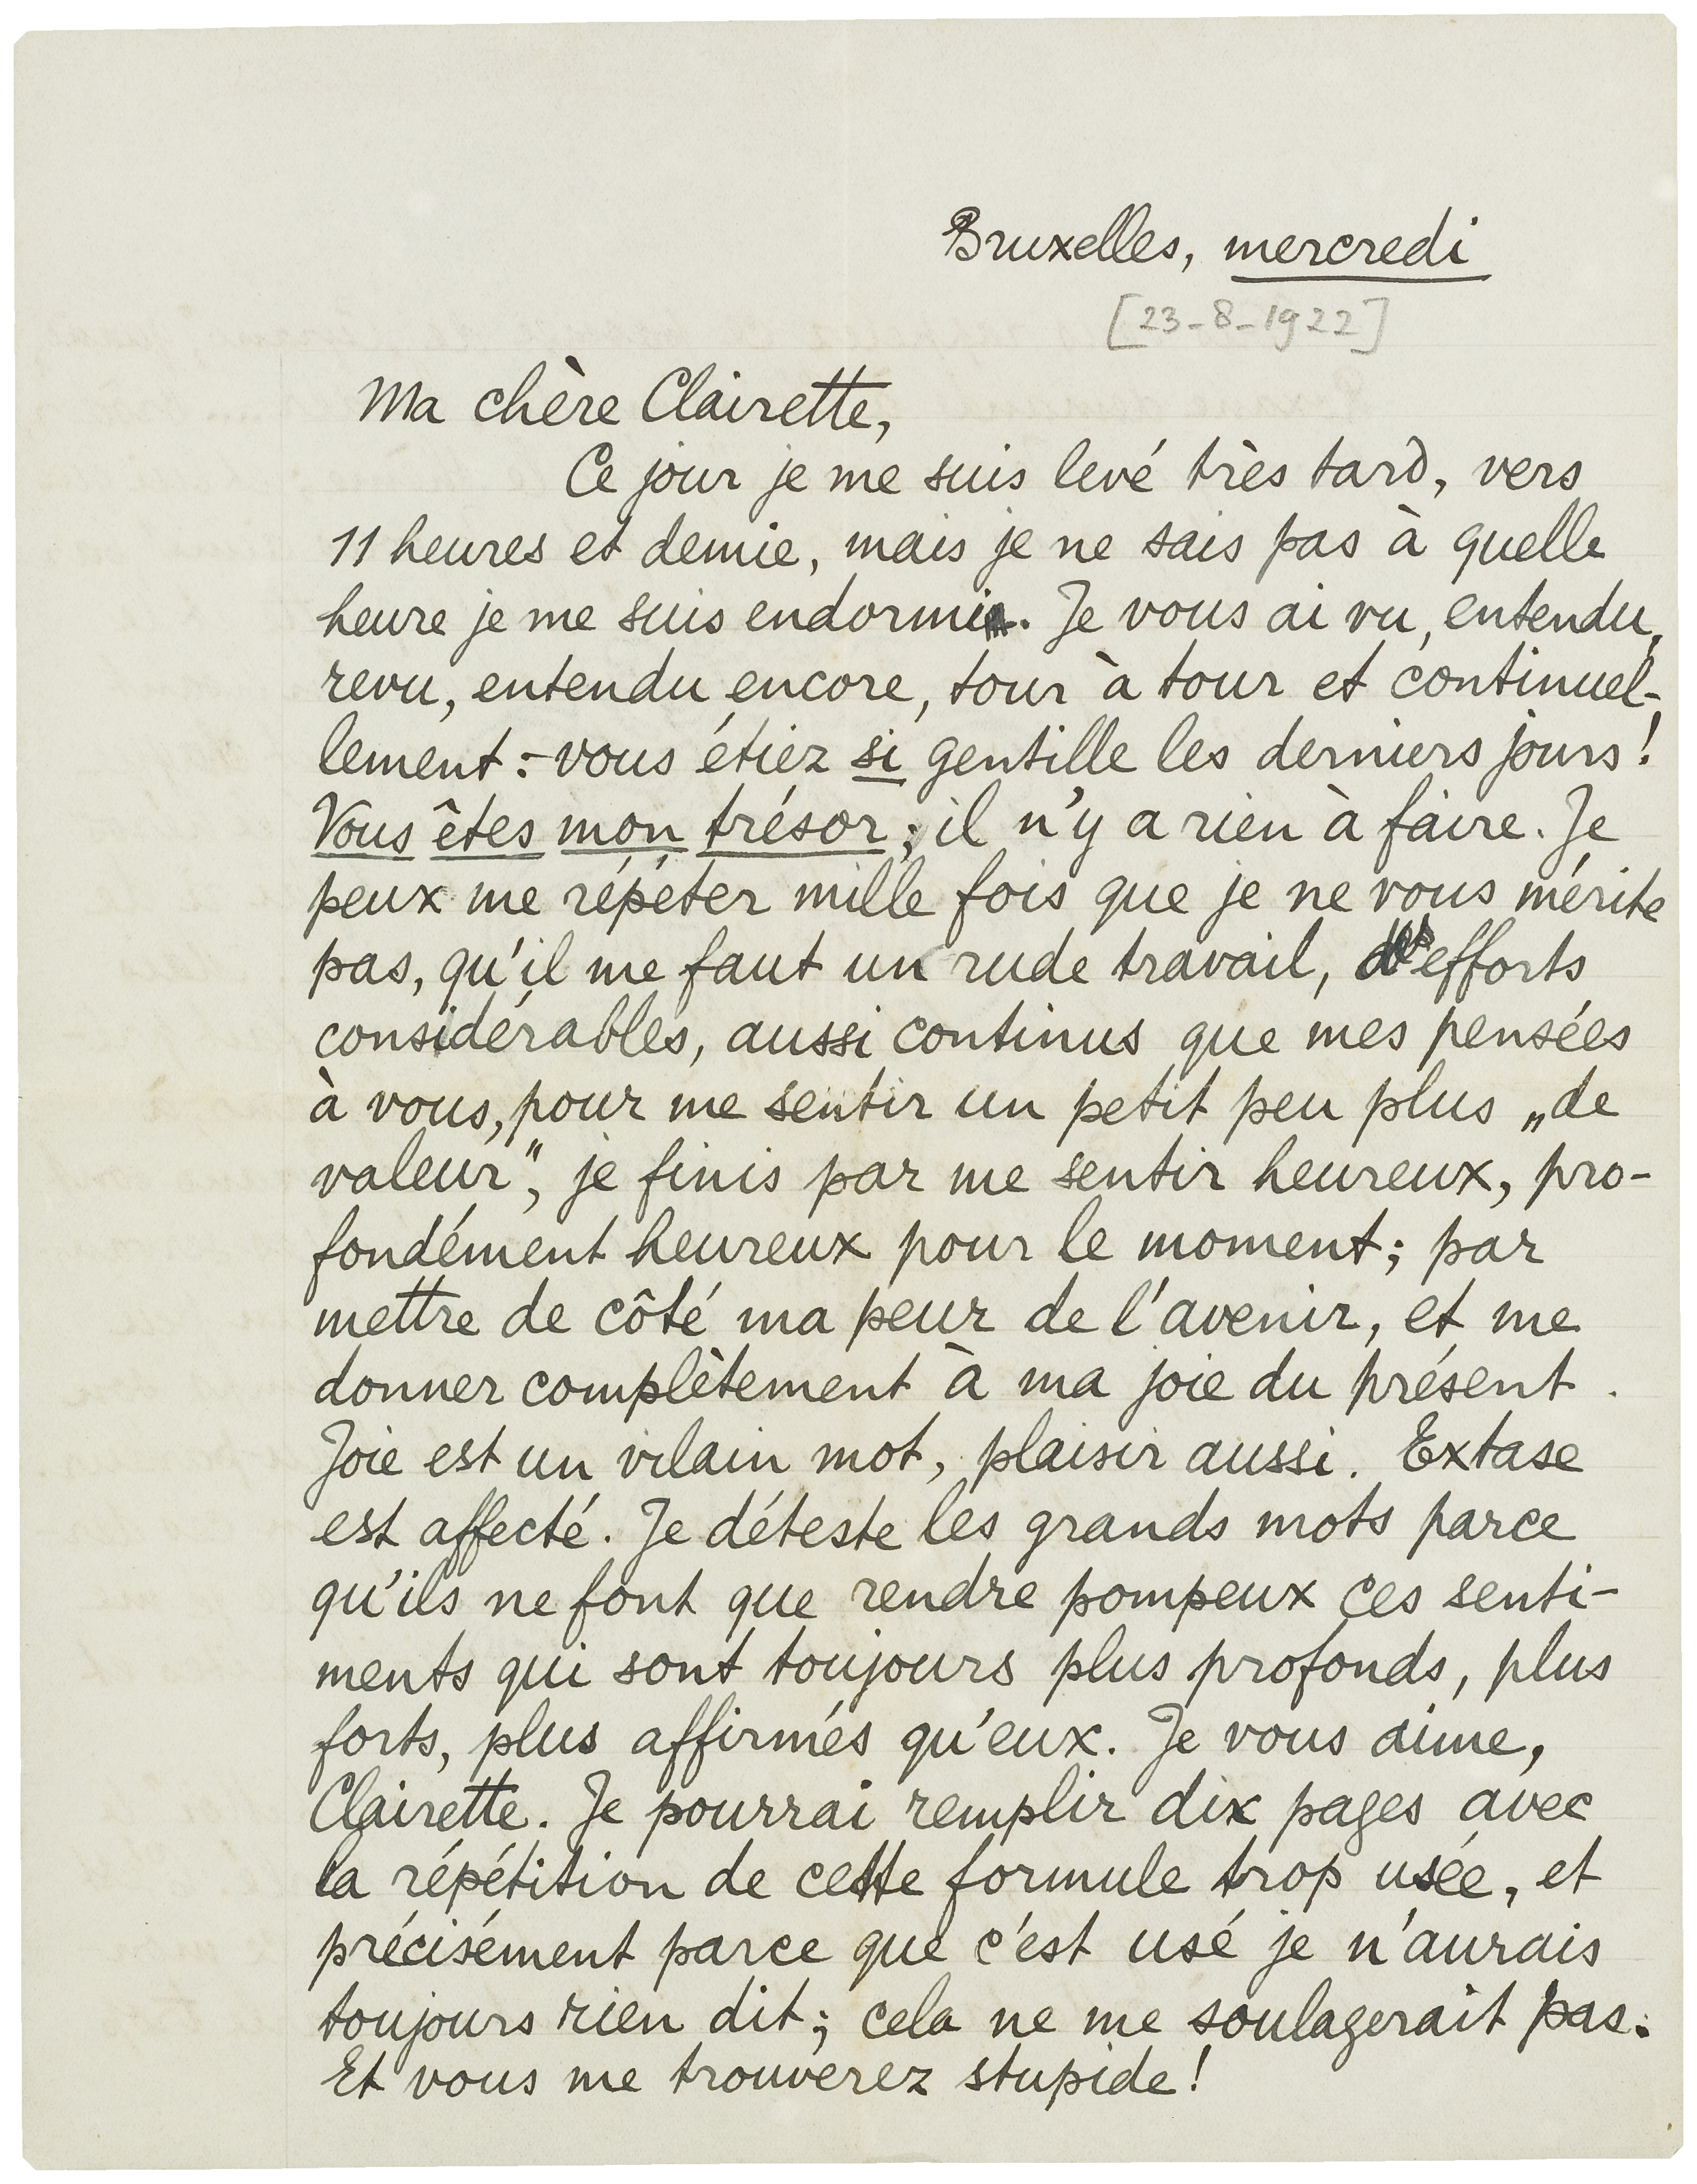 Bruxelles, mercredi
[23-8-1922]
Ma chère Clairette,
Ce jour je me suis levé très tard, vers
11 heures et demie, mais je ne sais pas à quelle
heure je me suis endormi. Je vous ai vu, entendu,
revu, entendu encore, tour à tour et continuel-
lement :- vous étiez si gentille les derniers jours!
Vous êtes mon trésor; il n'y a rien à faire. Je
peux me répéter mille fois que je ne vous mérite
pas, qu'il me faut un rude travail, d'efforts
considérables, aussi continus que mes pensées
à vous, pour me sentir un petit peu plus „de
valeur", je finis par me sentir heureux, pro-
fondément heureux pour le moment; par
mettre de côté ma peur de l'avenir, et me
donner complètement à ma joie du présent.
Joie est un vilain mot, plaisir aussi. Extase
est affecté. Je déteste les grands mots parce
qu'ils ne font que rendre pompeux ces senti-
ments qui sont toujours plus profonds, plus
forts, plus affirmés qu'eux. Je vous aime,
Clairette. Je pourrai remplir dix pages avec
la répétition de cette formule trop usée, et
précisément parce que c'est usé je n'aurais
toujours rien dit; cela ne me soulagerait pas.
Et vous me trouverez stupide!